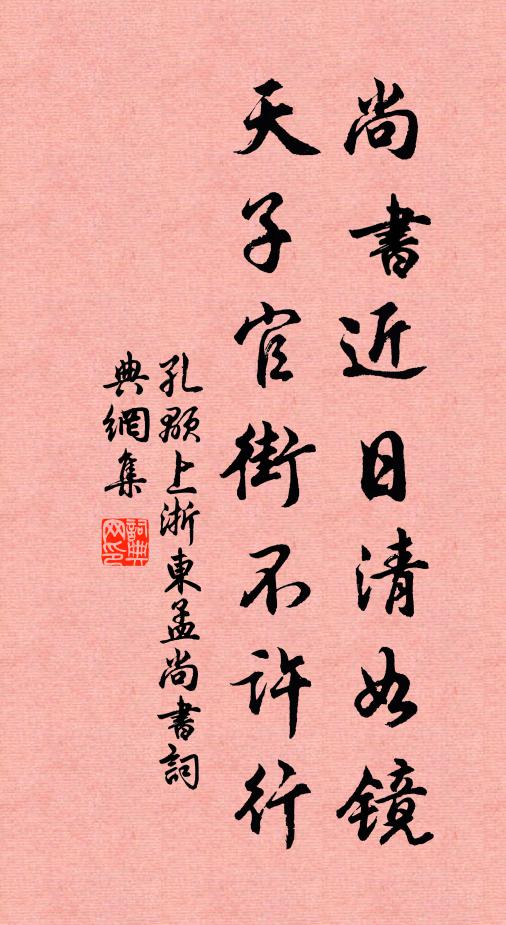 尚書近日清如鏡
天子官街不許行
孔顒上浙東孟尚書詞
典網集
詞典網印